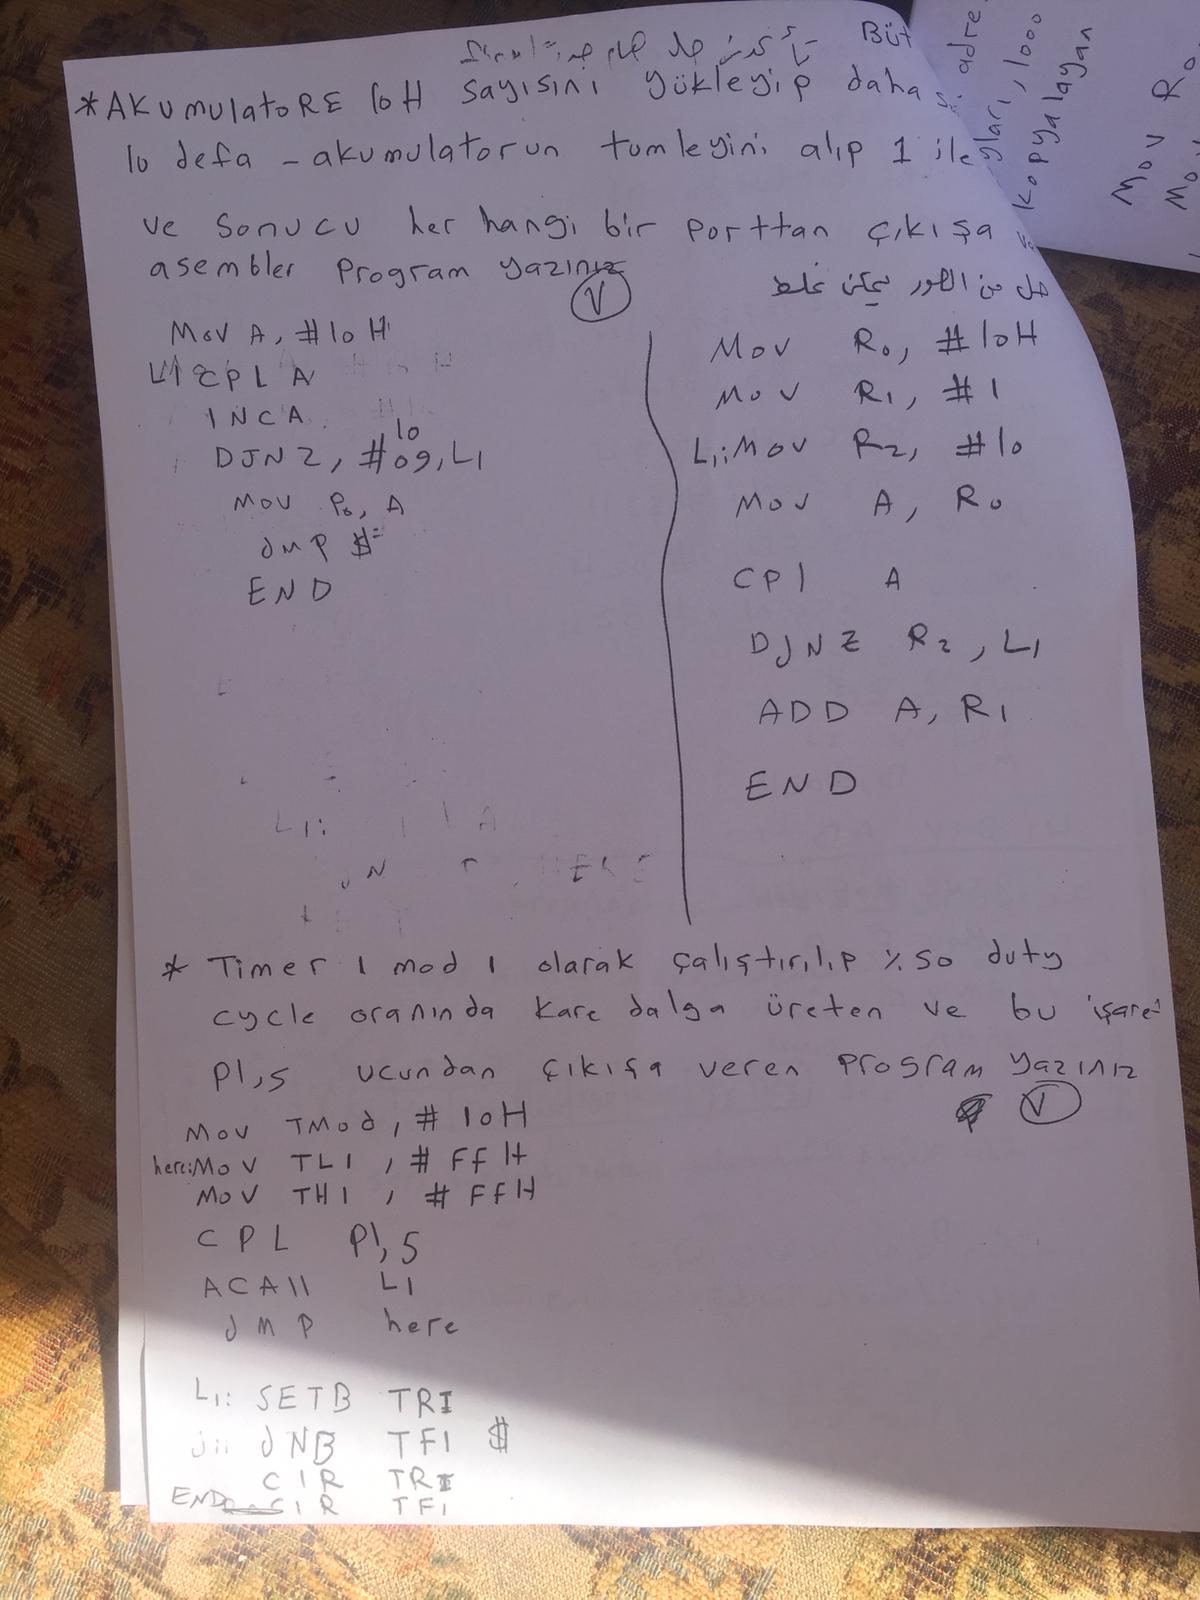 Büt
*AKumulatoRE 10H sayısını yükleyip daha
10 defa - akumulatorun tümleyini alıp 1 ile
ve sonucu her hangi bir porttan çıkışa
asembler program yazınız
V
حل من الدور يمكن غلط
Mov A, #10H
L1: CPL A
INC A
10
DJNZ, #09, L1
Mov P0, A
JMP $
END
Mov R0, #10H
Mov R1, #1
L1: Mov R2, #10
Mov A, R0
CPl A
DJNZ R2, L1
ADD A, R1
END
* Timer 1 mod 1 olarak çalıştırılıp %50 duty
cycle oranında kare dalga üreten ve bu işare
P1,5 ucundan çıkışa veren program yazınız
V
Mov TMod, #10H
here: Mov TL1, #FFH
Mov TH1, #FFH
CPL P1,5
ACAll L1
JMP here
L1: SETB TR1
JNB TF1 $
ClR TR1
END ClR TF1
adre
yları, 1000
kopyalayan
Mov R0